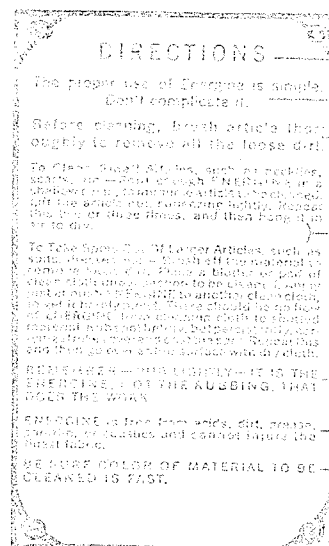 DIRECTIONS
The proper use of Energine is simple.
Don't complicate it.
Before cleaning, brush article thor-
oughly to remove all the loose dirt.
To Clean Small Articles, such as neckties,
scarfs, etc. enough ENERGINE in a
Lift the article out, squeezing lightly. Repeat
this two or three times, and then hang it in
air to dry.
To Take Spots Out Of Larger Articles, such as
suits, dresses, Brush off the material to
remove loose dirt. Place a blotter or pad of
clean cloth under portion to be cleaned.
ENERGINE to another clean cloth,
There should be no flow
of ENERGINE from cleaning cloth to
Repeat this
and then go over entire surface with dry cloth.
REMEMBER—RUB LIGHTLY—IT IS THE
ENERGINE, NOT THE RUBBING, THAT
DOES THE WORK.
ENERGINE is free from acids, dirt, grease,
and cannot injure the
finest fabric.
BE SURE COLOR OF MATERIAL TO BE
CLEANED IS FAST.